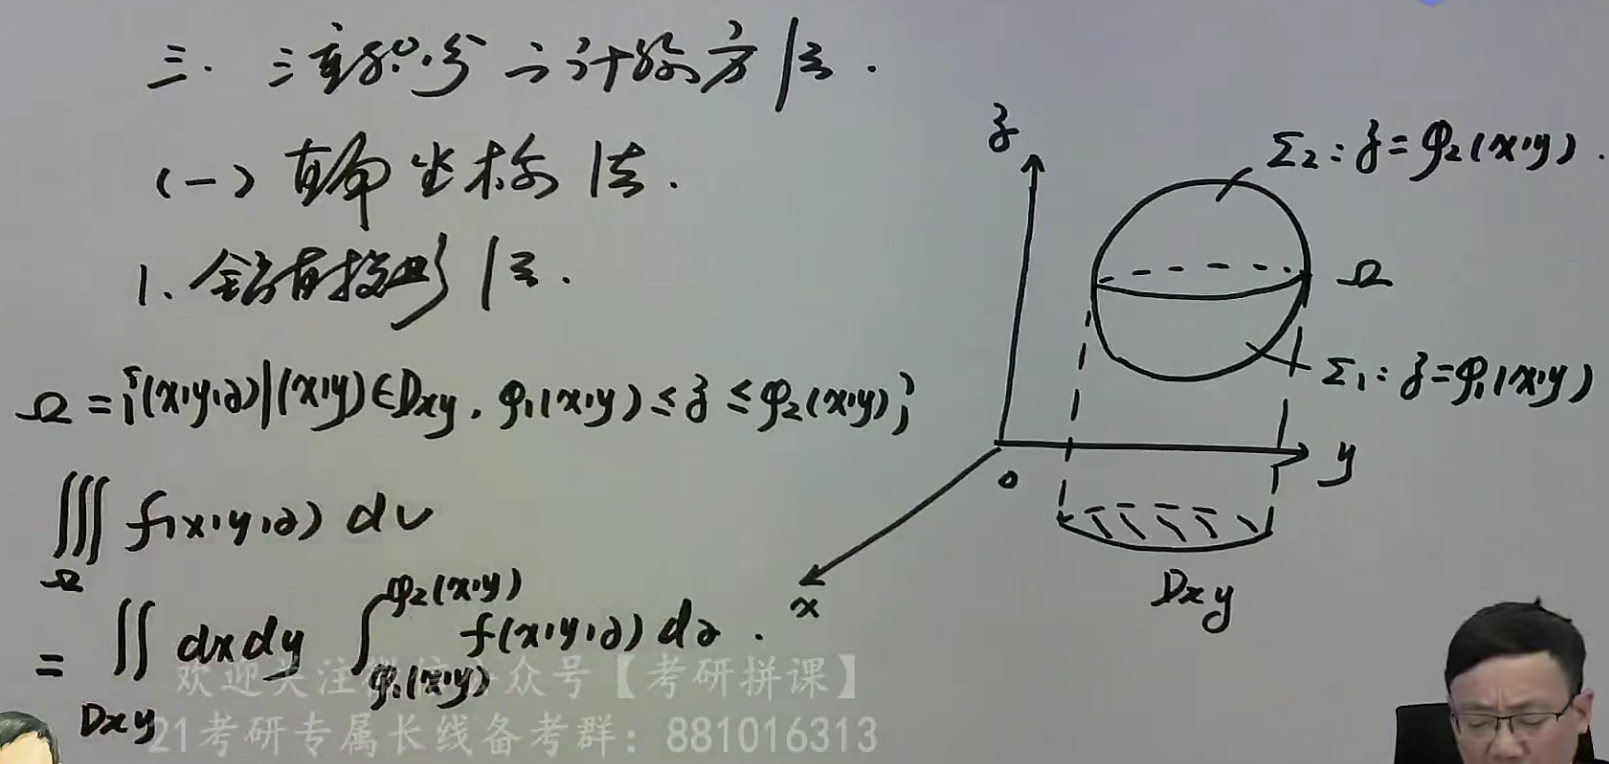 三. 三重积分之计算方法.
(一) 直角坐标法.
1. 铅直投影法.
Ω = {(x,y,z)|(x,y)∈Dxy, φ₁(x,y) ≤ z ≤ φ₂(x,y)}
∭ f(x,y,z) dv
Ω
= ∬ dxdy ∫ f(x,y,z) dz.
φ₂(x,y)
φ₁(x,y)
Dxy
z
Σ₂: z = φ₂(x,y).
Ω
Σ₁: z = φ₁(x,y)
y
0
x
Dxy
欢迎关注 众号【考研拼课】
21考研专属长线备考群：881016313